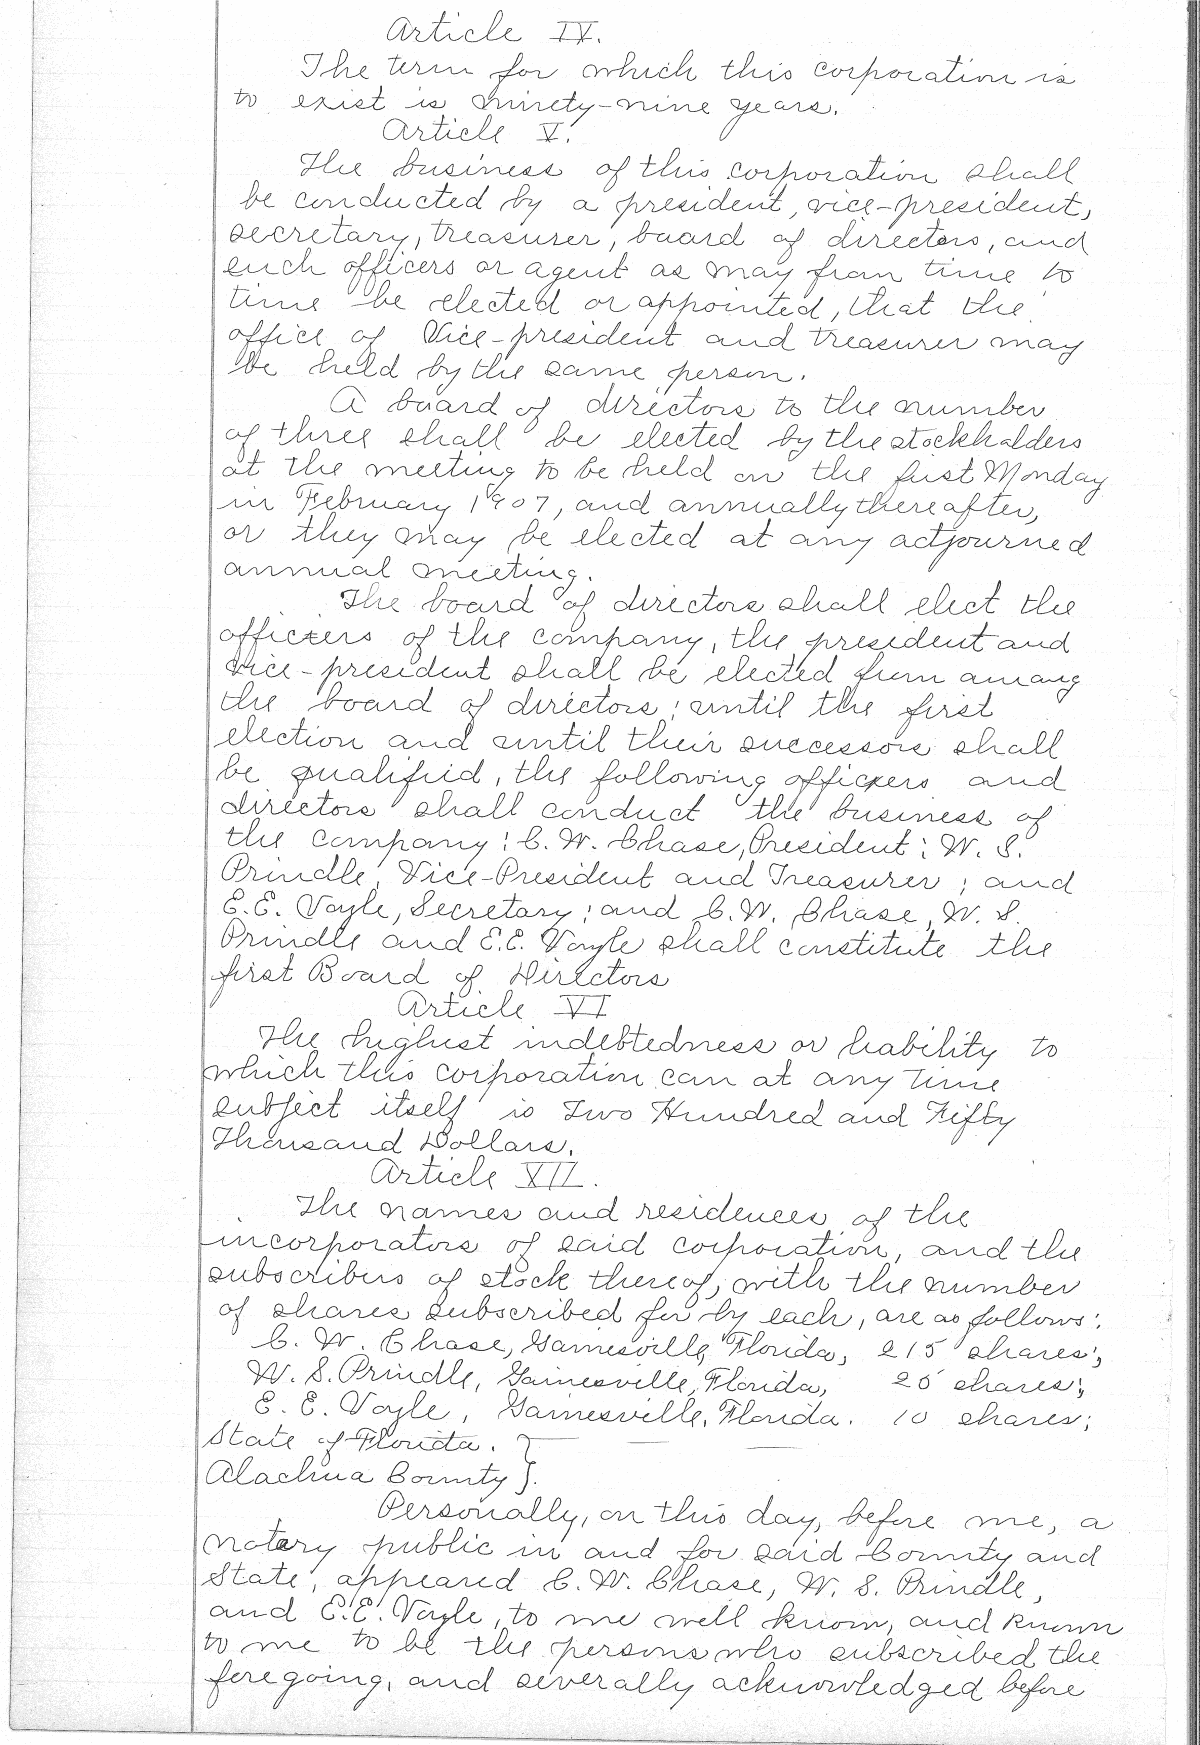 Article IV.
The term for which this corporation is
to exist is ninety-nine years.
Article V.
The business of this corporation shall
be conducted by a president, vice-president,
secretary, treasurer, board of directors, and
such officers or agent as may from time to
time be elected or appointed, that the
office of Vice-president and treasurer may
be held by the same person.
A board of directors to the number
of three shall be elected by the stockholders
at the meeting to be held on the first Monday
in February 1907, and annually thereafter,
or they may be elected at any adjourned
annual meeting.
The board of directors shall elect the
officers of the company, the president and
vice-president shall be elected from among
the board of directors; until the first
election and until their successors shall
be qualified, the following officers and
directors shall conduct the business of
the company: C. W. Chase, President; W. S.
Prindle, Vice-President and Treasurer; and
E.E. Voyle, Secretary; and C.W. Chase, W. S.
Prindle and E.E. Voyle shall constitute the
first Board of Directors
Article VI
The highest indebtedness or liability to
which this corporation can at any time
subject itself is Two Hundred and Fifty
Thousand Dollars.
Article VII.
The names and residences of the
incorporators of said corporation, and the
subscribers of stock thereof, with the number
of shares subscribed for by each, are as follows:
C. W. Chase, Gainesville, Florida, 215 shares;
W. S. Prindle, Gainesville, Florida, 25 shares;
E. E. Voyle, Gainesville, Florida. 10 shares;
State of Florida. }
Alachua County }.
Personally, on this day, before me, a
notary public in and for said County and
State, appeared C. W. Chase, W. S. Prindle,
and E.E. Voyle, to me well know, and known
to me to be the persons who subscribed the
foregoing, and severally acknowledged before